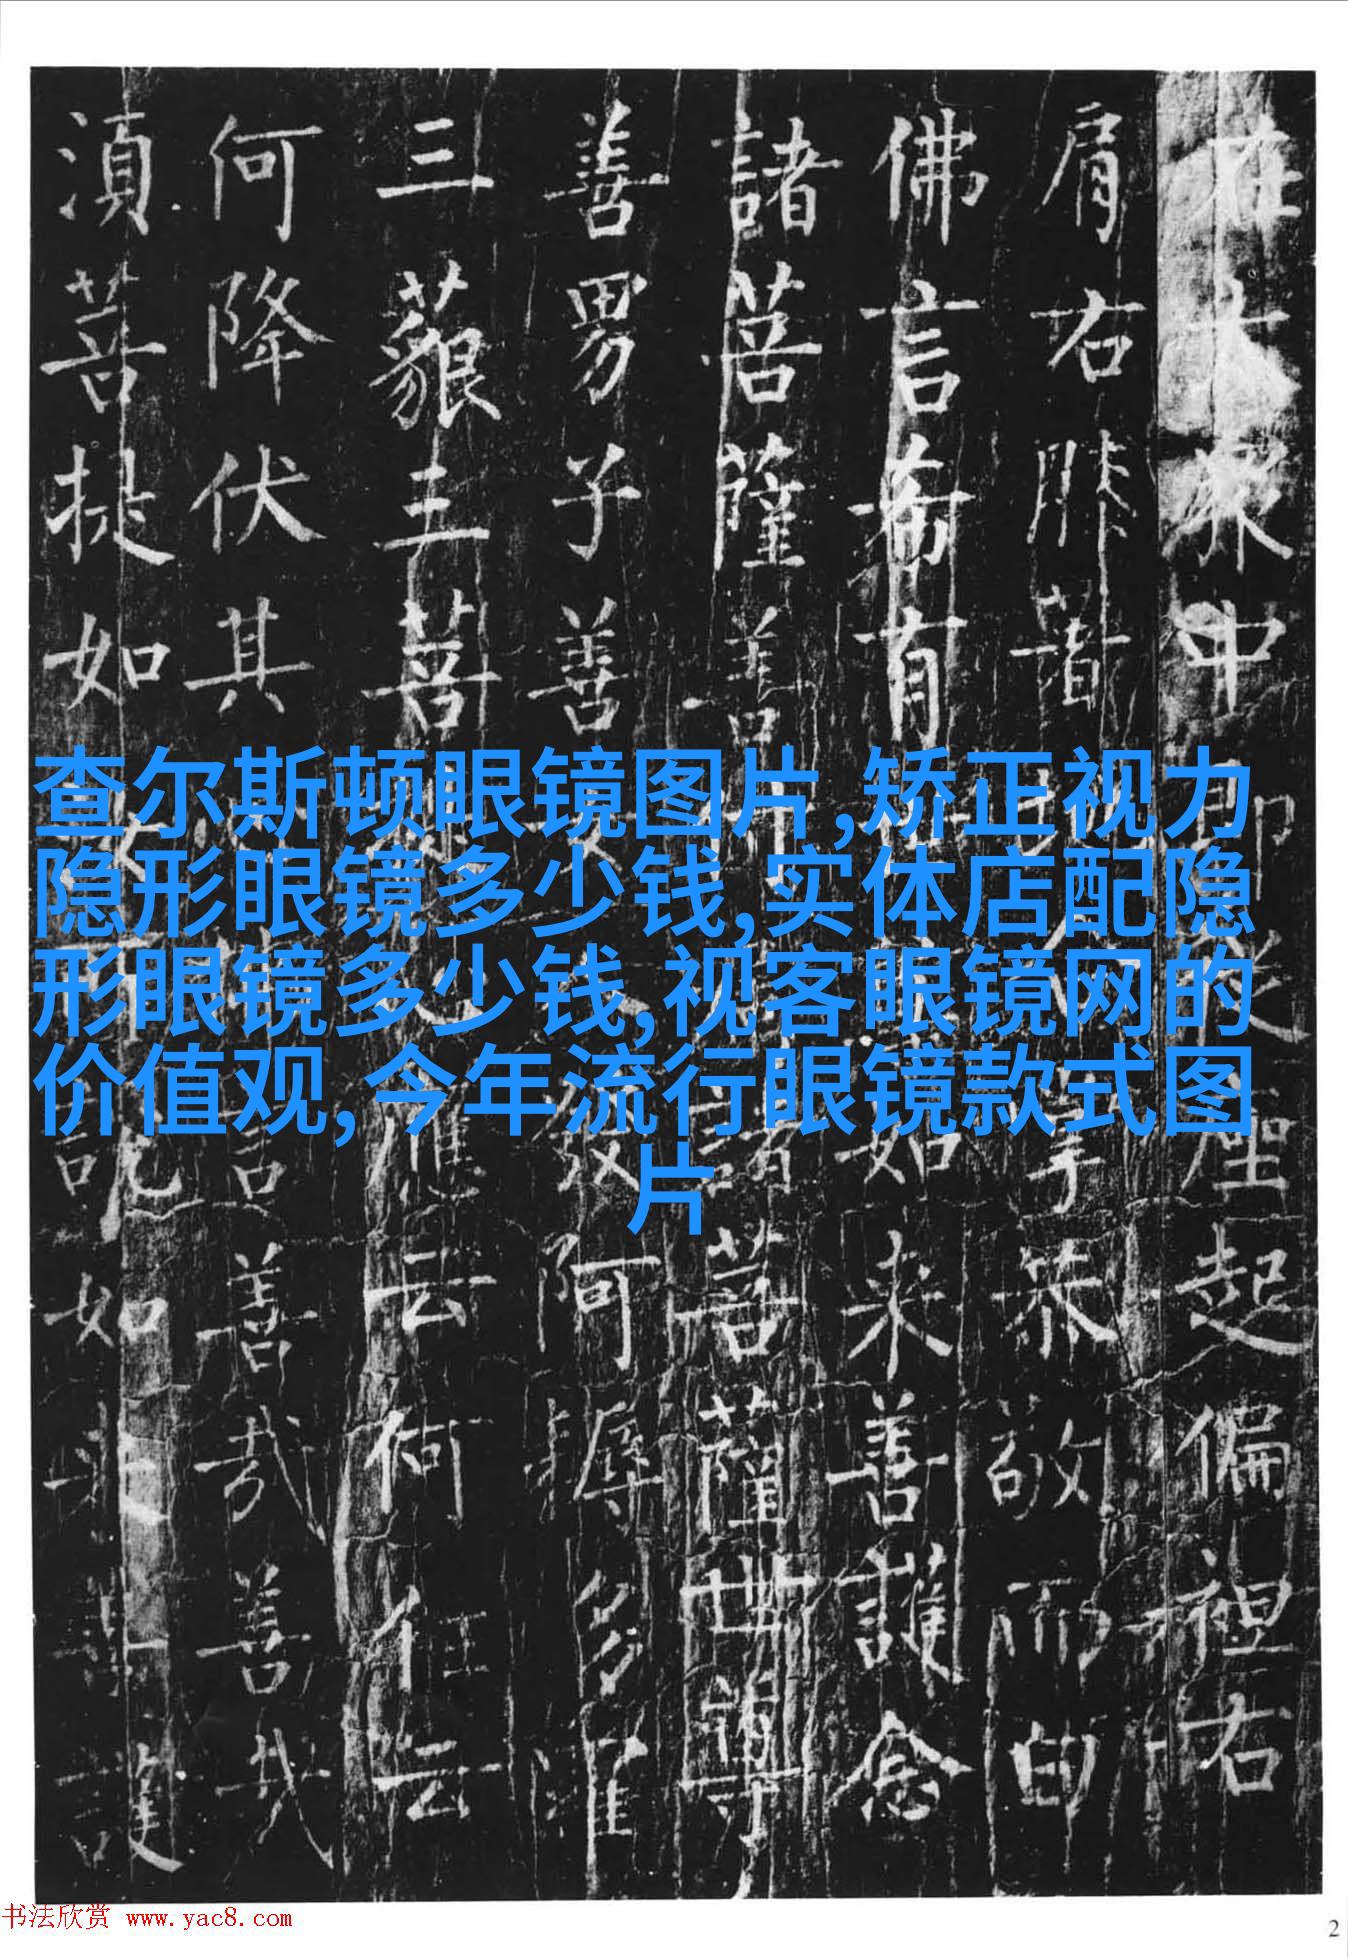 在大眾中即從座起偏袒右
肩右膝著掌恭敬而白
佛言希有如来善護念
諸菩薩善諸菩薩世尊
善男子善發阿耨多羅
三藐三菩應云何住云
何降伏其言善哉善哉
須菩提如說如來善護
查尔斯顿眼镜图片,矫正视力
隐形眼镜多少钱,实体店配隐
形眼镜多少钱,视客眼镜网的
价值观,今年流行眼镜款式图
片
书法欣赏 www.yac8.com
2